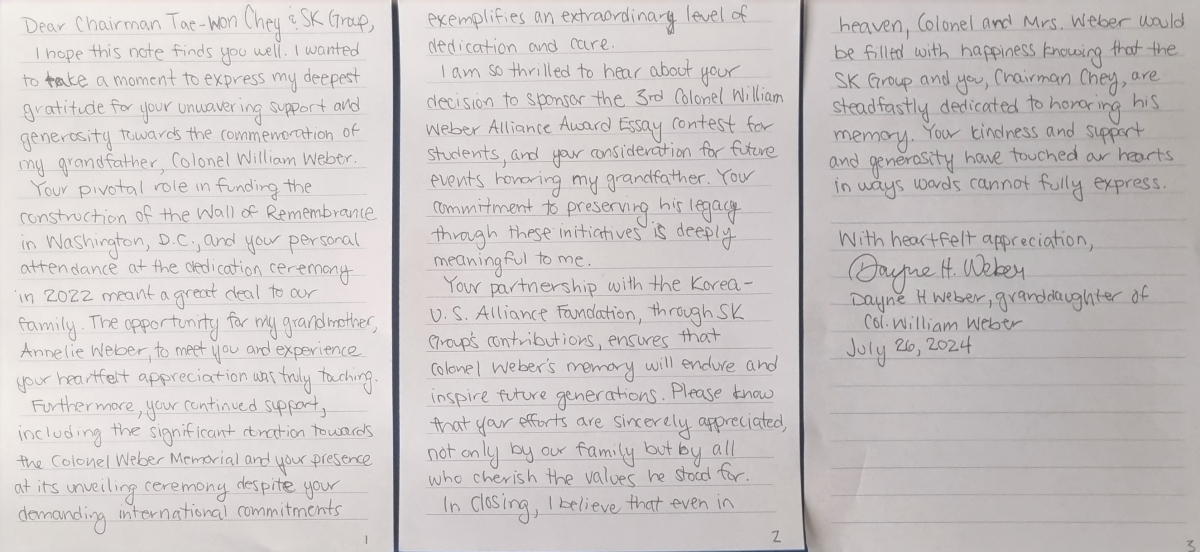 Dear Chairman Tae-won Chey & SK Group,
I hope this note finds you well. I wanted
to take a moment to express my deepest
gratitude for your unwavering support and
generosity towards the commemoration of
my grandfather, Colonel William Weber.
Your pivotal role in funding the
construction of the Wall of Remembrance
in Washington, D.C., and your personal
attendance at the dedication ceremony
in 2022 meant a great deal to our
family. The opportunity for my grandmother,
Annelie Weber, to meet you and experience
your heartfelt appreciation was truly touching.
Furthermore, your continued support,
including the significant donation towards
the Colonel Weber Memorial and your presence
at its unveiling ceremony despite your
demanding international commitments
1
exemplifies an extraordinary level of
dedication and care.
I am so thrilled to hear about your
decision to sponsor the 3rd Colonel William
Weber Alliance Award Essay contest for
students, and your consideration for future
events honoring my grandfather. Your
commitment to preserving his legacy
through these initiatives is deeply
meaningful to me.
Your partnership with the Korea-
U.S. Alliance Foundation, through SK
Group's contributions, ensures that
Colonel Weber's memory will endure and
inspire future generations. Please know
that your efforts are sincerely appreciated,
not only by our family but by all
who cherish the values he stood for.
In closing, I believe that even in
2
heaven, Colonel and Mrs. Weber would
be filled with happiness knowing that the
SK Group and you, Chairman Chey, are
steadfastly dedicated to honoring his
memory. Your kindness and support
and generosity have touched our hearts
in ways words cannot fully express.
With heartfelt appreciation,
Dayne H. Weber
Dayne H Weber, granddaughter of
Col. William Weber
July 26, 2024
3